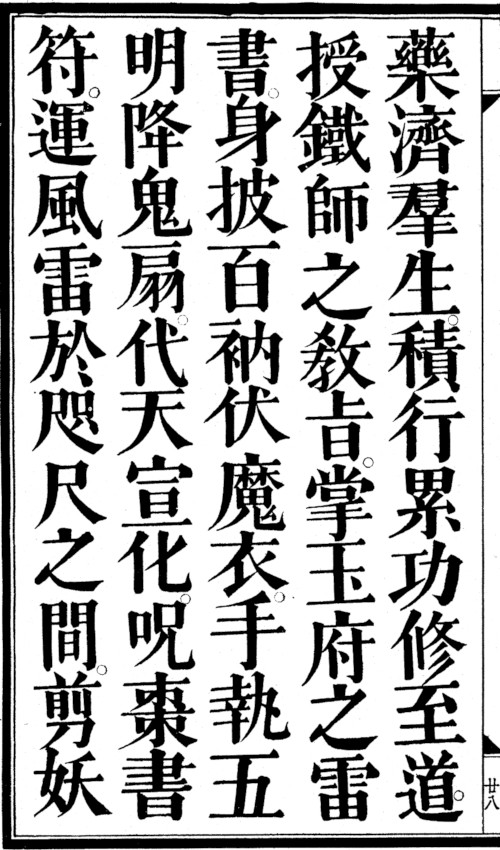 藥濟羣生。積行累功修至道。
授鐵師之教旨。掌玉府之雷
書。身披百衲伏魔衣。手執五
明降鬼扇。代天宣化。呪棗書
符。運風雷於咫尺之間。剪妖
廿八